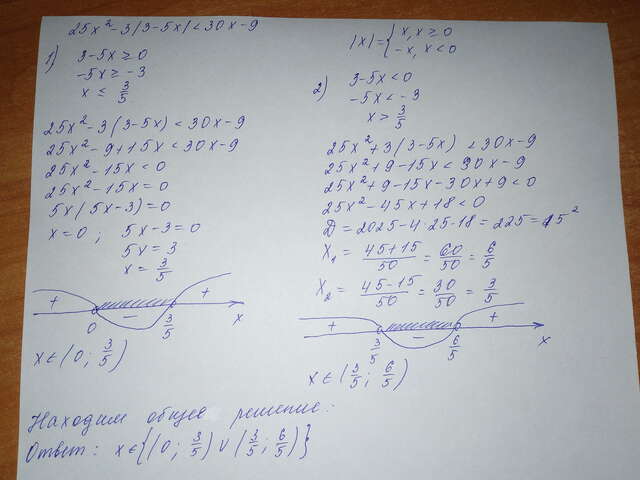 25x² - 3|3-5x| < 30x - 9
1) 3-5x ≥ 0
-5x ≥ -3
x ≤ 3/5
25x² - 3(3-5x) < 30x - 9
25x² - 9 + 15x < 30x - 9
25x² - 15x < 0
25x² - 15x = 0
5x(5x-3) = 0
x = 0; 5x-3 = 0
5x = 3
x = 3/5
+ - +
0 3/5 x
x ∈ (0; 3/5)
|x| = { x, x ≥ 0
-x, x < 0
2) 3-5x < 0
-5x < -3
x > 3/5
25x² + 3(3-5x) < 30x - 9
25x² + 9 - 15x < 30x - 9
25x² + 9 - 15x - 30x + 9 < 0
25x² - 45x + 18 < 0
D = 2025 - 4·25·18 = 225 = 15²
X₁ = 45+15/50 = 60/50 = 6/5
X₂ = 45-15/50 = 30/50 = 3/5
+ - +
3/5 6/5 x
x ∈ (3/5; 6/5)
Находим общее решение:
Ответ: x ∈ {(0; 3/5) ∪ (3/5; 6/5)}